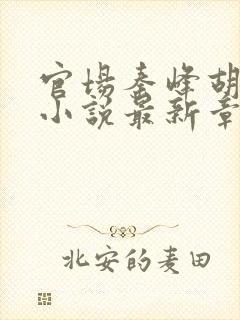 官場秦峰胡
小說最新章
北安的麦田